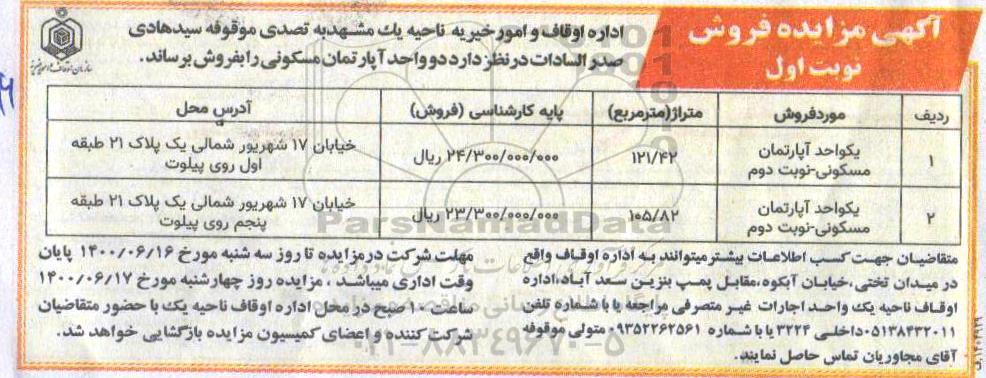 آگهی مزایده فروش
نوبت اول
اداره اوقاف و امور خیریه ناحیه یك مشهد به تصدی موقوفه سیدهادی
صدر السادات در نظر دارد دو واحد آپارتمان مسکونی را بفروش برساند.
ردیف موردفروش متراژ(مترمربع) پایه کارشناسی (فروش) آدرس محل
۱ یکواحد آپارتمان مسکونی-نوبت دوم ۱۲۱/۴۲ ۲۴/۳۰۰/۰۰۰/۰۰۰ ریال خیابان ۱۷ شهریور شمالی یک پلاک ۲۱ طبقه اول روی پیلوت
۲ یکواحد آپارتمان مسکونی-نوبت دوم ۱۰۵/۸۲ ۲۳/۳۰۰/۰۰۰/۰۰۰ ریال خیابان ۱۷ شهریور شمالی یک پلاک ۲۱ طبقه پنجم روی پیلوت
متقاضیان جهت کسب اطلاعات بیشتر میتوانند به اداره اوقاف واقع
در میدان تختی،خیابان آبکوه،مقابل پمپ بنزین سعد آباد،اداره
اوقاف ناحیه یک واحد اجارات غیر متصرفی مراجعه یا با شماره تلفن
۰۵۱۳۸۴۳۲۰۱۱داخلی ۳۲۲۴ یا با شماره ۰۹۳۵۲۲۶۲۵۶۱ متولی موقوفه
آقای مجاوریان تماس حاصل نمایند.
مهلت شرکت در مزایده تا روز سه شنبه مورخ ۱۴۰۰/۰۶/۱۶ پایان
وقت اداری میباشد ، مزایده روز چهارشنبه مورخ ۱۴۰۰/۰۶/۱۷
ساعت ۱۰ صبح در محل اداره اوقاف ناحیه یک با حضور متقاضیان
شرکت کننده و اعضای کمیسیون مزایده بازگشایی خواهد شد.
ParsNamadData
۰۲۱-۸۸۳۴۹۶۷۰-۵